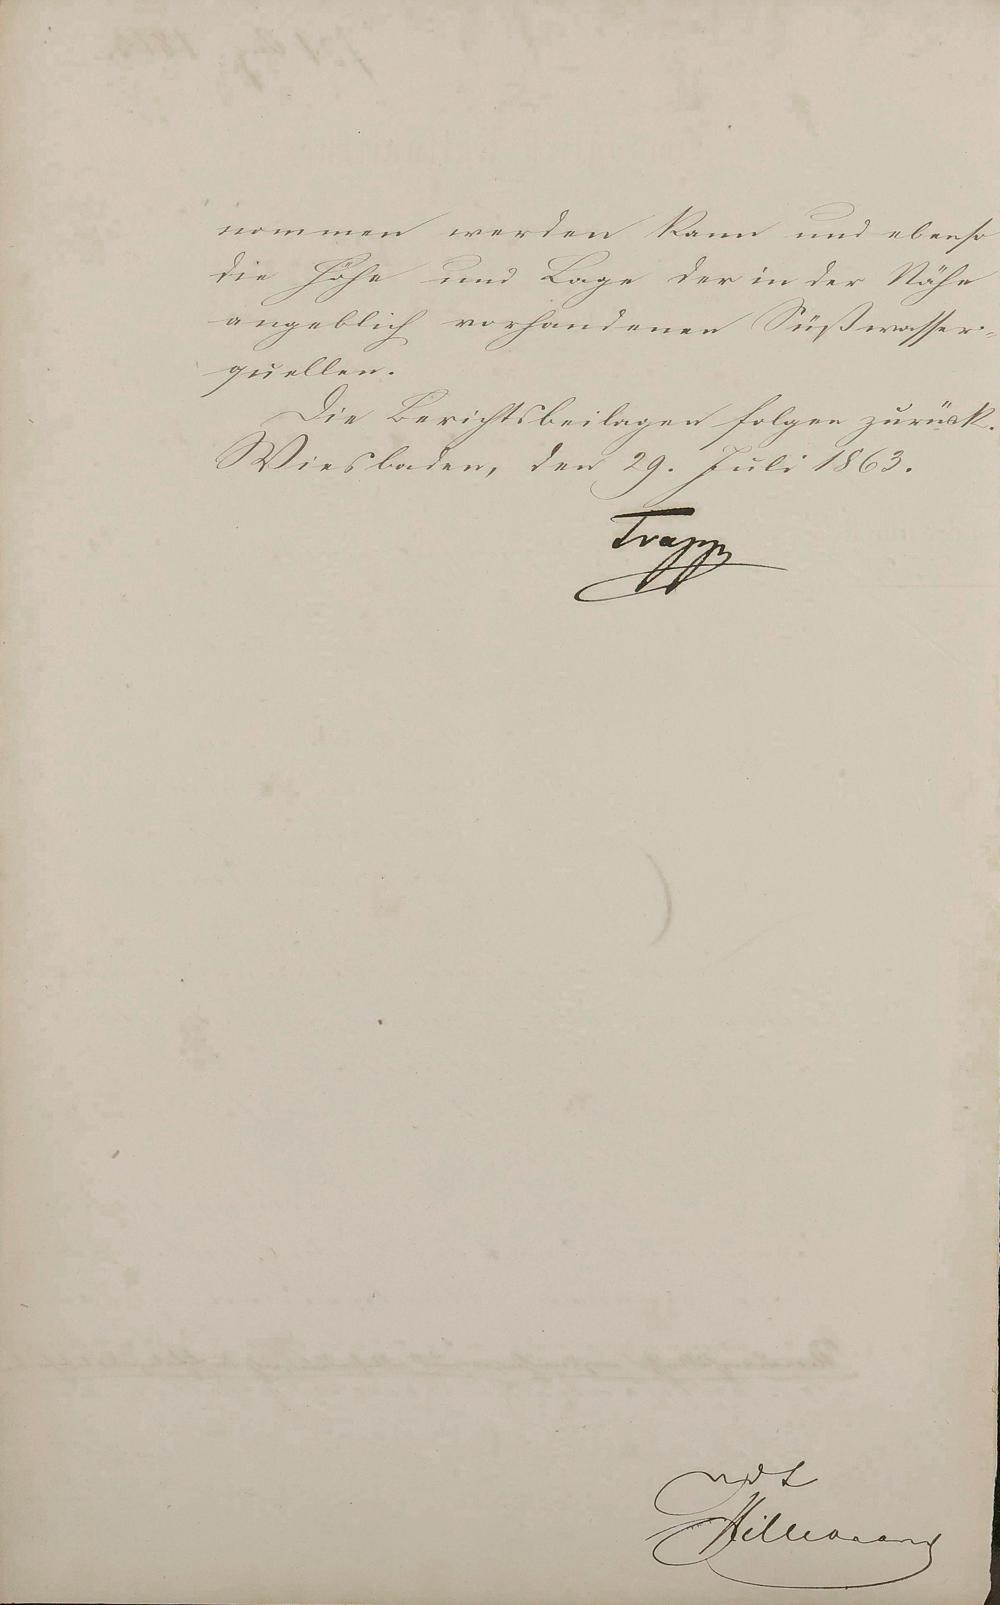 nommen werden kann und ebenso
die Höhe und Lage der in der Nähe
angeblich vorhandenen Süßwasser-
quellen.
Die Berichtsbeilagen folgen zurück.
Wiesbaden, den 29. Juli 1863.
Trapp
vdt